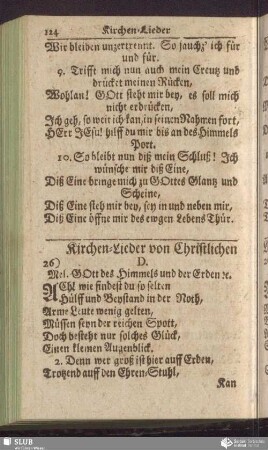 124 Kirchen-Lieder
Wir bleiben unzertrennt. So jauchz’ ich für
und für.
9. Trifft mich nun auch mein Creutz und
drücket meinen Rücken,
Wohlan! GOtt steht mir bey, es soll mich
nicht erdrücken,
Ich geh, so weit ich kan, in seinen Nahmen fort,
HErr JEsu! hilff du mir bis an des Himmels
Port.
10. So bleibt nun diß mein Schluß! Ich
wünsche mir diß Eine,
Diß Eine bringe mich zu GOttes Glantz und
Scheine,
Diß Eine steh mir bey, sey in und neben mir,
Diß Eine öffne mir des ewgen Lebens Thür.
Kirchen-Lieder von Christlichen
26) D.
Mel. GOtt des Himmels und der Erden ꝛc.
ACh! wie findest du so selten
Hülff und Beystand in der Noth,
Arme Leute wenig gelten,
Müssen seyn der reichen Spott,
Doch besteht nur solches Glück,
Einen kleinen Augenblick.
2. Denn wer groß ist hier auff Erden,
Trotzend auff den Ehren-Stuhl,
Kan
SLUB